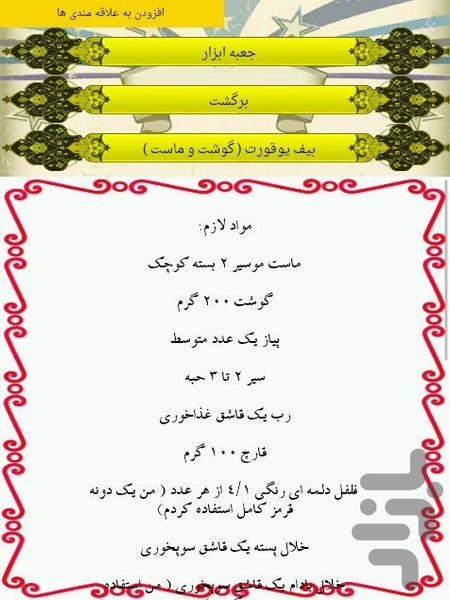 افزودن به علاقه مندی ها
جعبه ابزار
برگشت
بیف یوقورت ( گوشت و ماست )
مواد لازم:
ماست موسیر ۲ بسته کوچک
گوشت ۲۰۰ گرم
پیاز یک عدد متوسط
سیر ۲ تا ۳ حبه
رب یک قاشق غذاخوری
قارچ ۱۰۰ گرم
فلفل دلمه ای رنگی ۴/۱ از هر عدد ( من یک دونه
قرمز کامل استفاده کردم)
خلال پسته یک قاشق سوپخوری
خلال بادام یک قاشق سوپخوری ( من استفاده
بازار